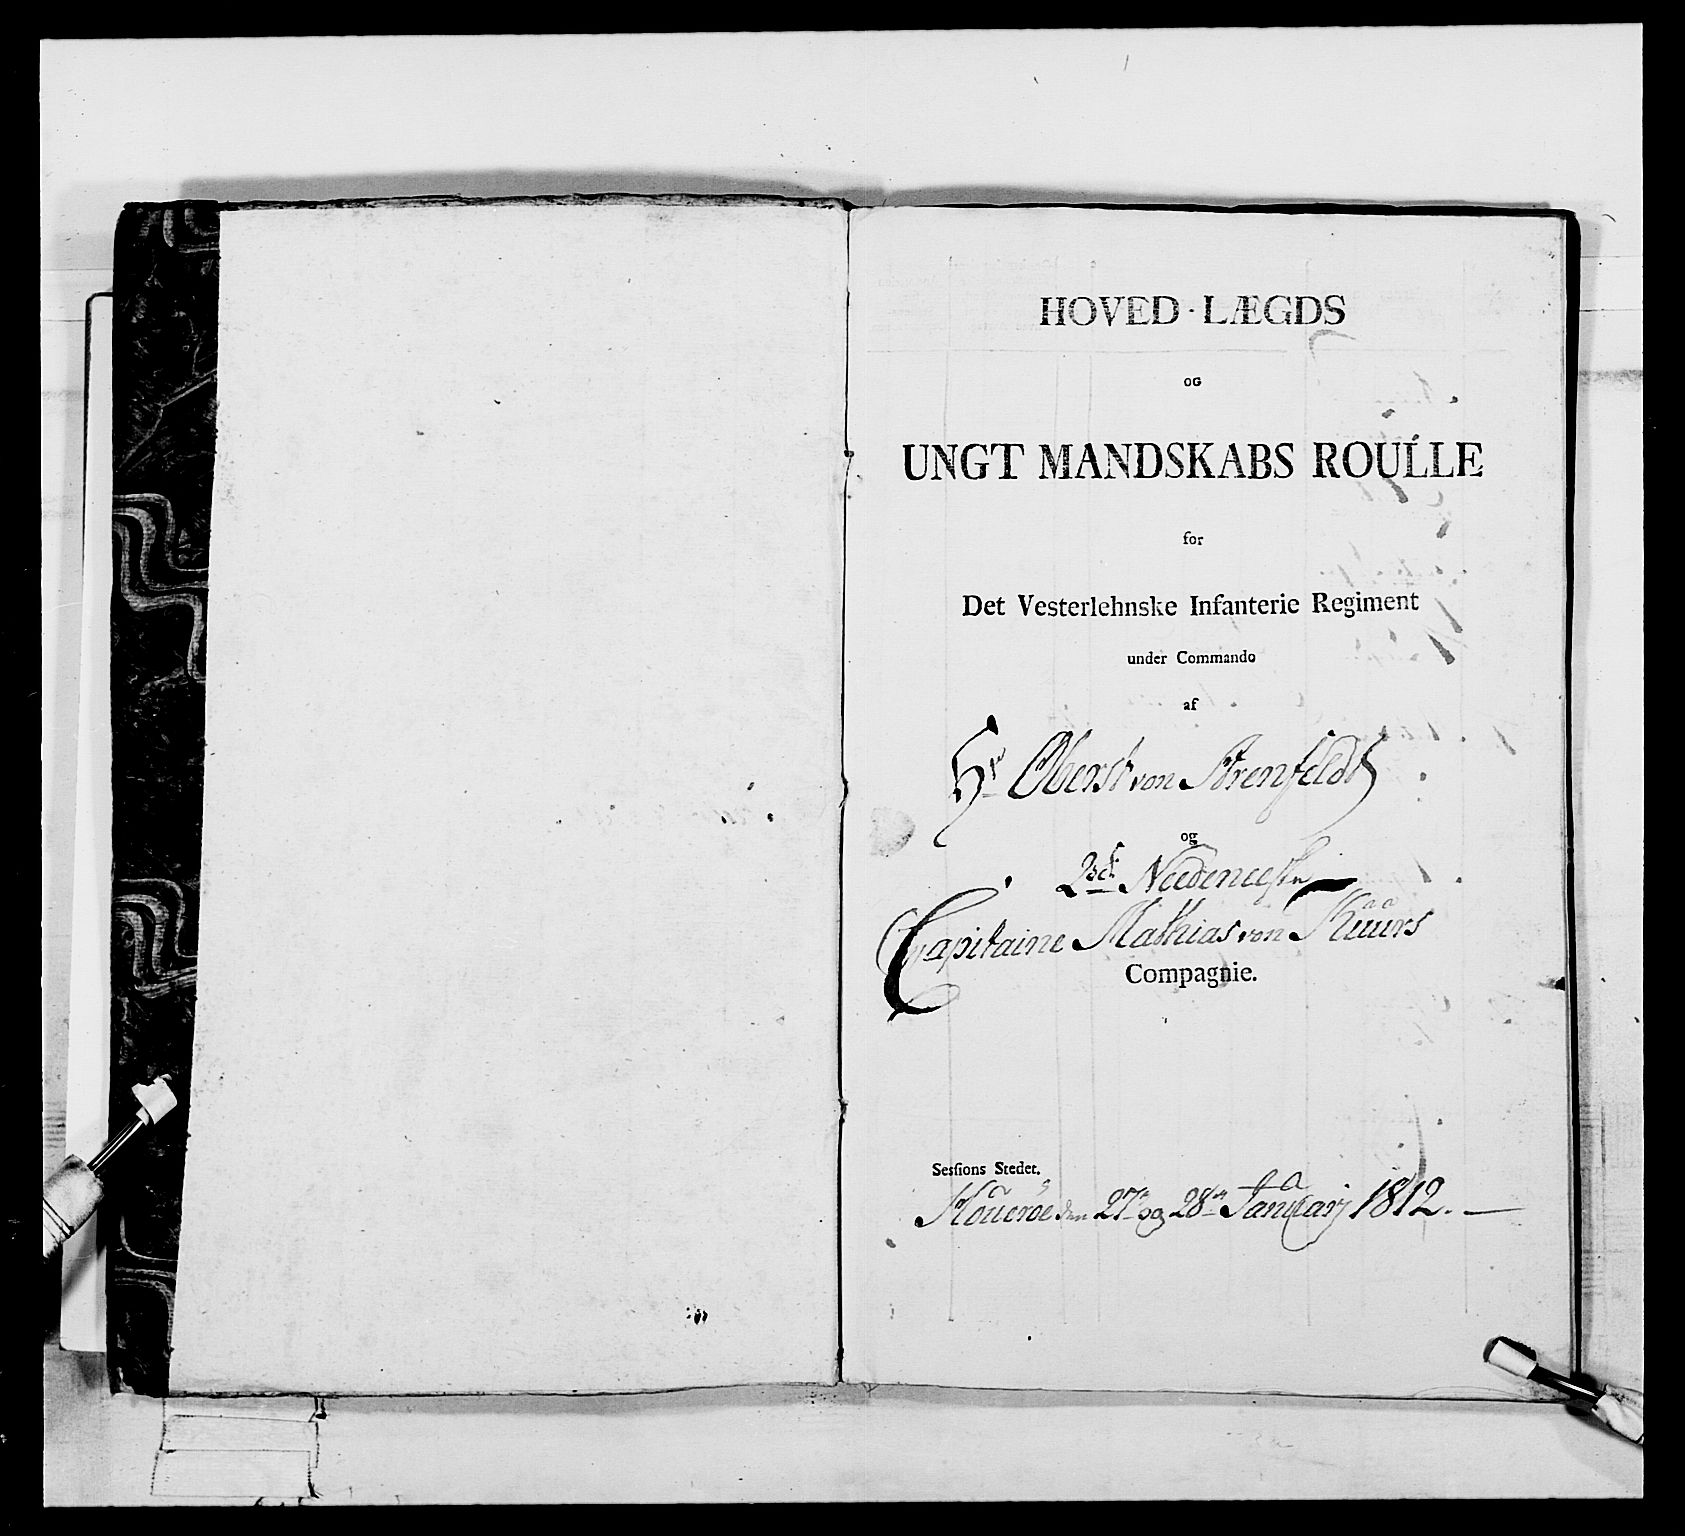 HOVED·LÆGDS
OG
UNGT MANDSKABS ROULLE
for
Det Vesterlehnske Infanterie Regiment
under Commando
af
Hr Oberst von Arenfeldt
og
2det Nedeneeske
Capitaine Mathias von
Compagnie.
Sessions Stedet.
den 27n og 28n Januarj 1812. —